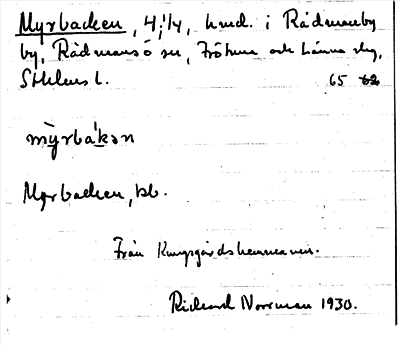 Myrbacken, 4, 1/4, hmd. i Rådmanby
by, Rådmansö sn, Frötuna och Länna skg,
Sthlms l. 65 62
my̍rbàkən
Myrbacken, bb.
Från Kungsgårdshemmanen.
Rickard Norrman 1930.